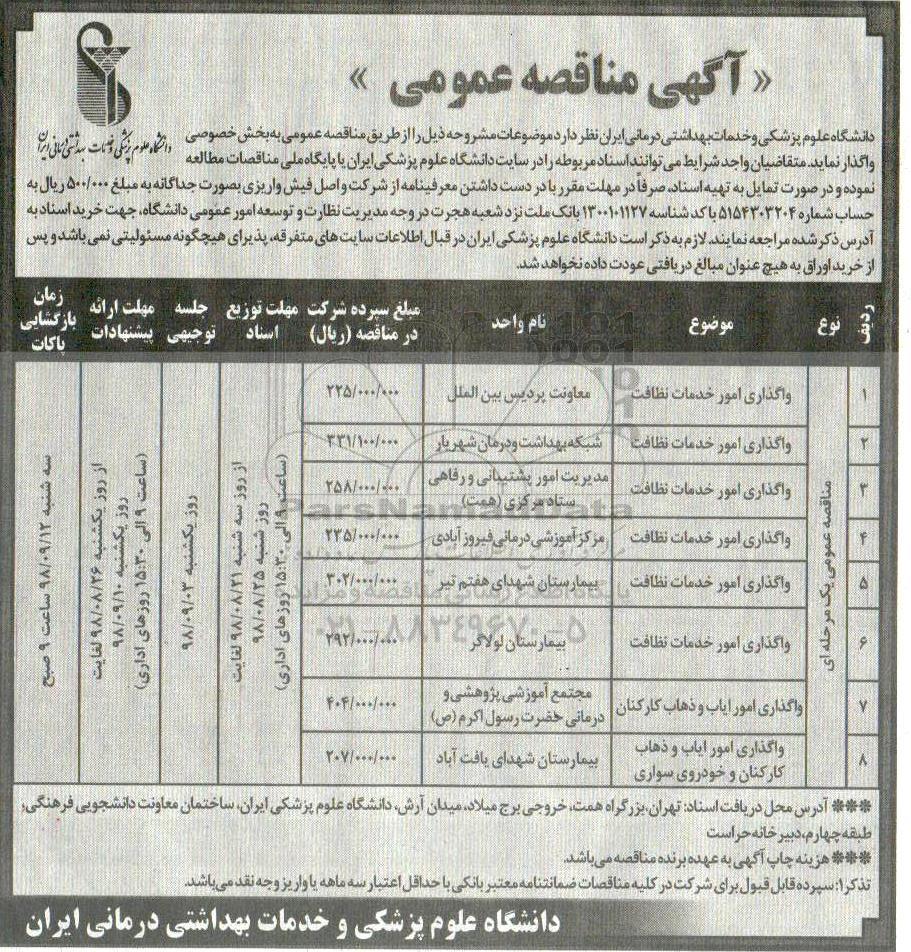 « آگهی مناقصه عمومی »
دانشگاه علوم پزشکی و خدمات بهداشتی درمانی ایران
دانشگاه علوم پزشکی و خدمات بهداشتی درمانی ایران نظر دارد موضوعات مشروحه ذیل را از طریق مناقصه عمومی به بخش خصوصی
واگذار نماید. متقاضیان واجد شرایط می‌توانند اسناد مربوطه را در سایت دانشگاه علوم پزشکی ایران یا پایگاه ملی مناقصات مطالعه
نموده و در صورت تمایل به تهیه اسناد، صرفاً در مهلت مقرر با در دست داشتن معرفینامه از شرکت و اصل فیش واریزی بصورت جداگانه به مبلغ ۵۰۰/۰۰۰ ریال به
حساب شماره ۵۱۵۴۳۰۳۲۰۴ با کد شناسه ۱۳۰۰۱۰۱۱۲۷ بانک ملت نزد شعبه هجرت در وجه مدیریت نظارت و توسعه امور عمومی دانشگاه، جهت خرید اسناد به
آدرس ذکر شده مراجعه نمایند. لازم به ذکر است دانشگاه علوم پزشکی ایران در قبال اطلاعات سایت های متفرقه، پذیرای هیچگونه مسئولیتی نمی باشد و پس
از خرید اوراق به هیچ عنوان مبالغ دریافتی عودت داده نخواهد شد.
ردیف نوع موضوع نام واحد مبلغ سپرده شرکت در مناقصه (ریال) مهلت توزیع اسناد جلسه توجیهی مهلت ارائه پیشنهادات زمان بازگشایی پاکات
۱ واگذاری امور خدمات نظافت معاونت پردیس بین الملل ۲۲۵/۰۰۰/۰۰۰
۲ واگذاری امور خدمات نظافت شبکه بهداشت و درمان شهریار ۳۳۱/۱۰۰/۰۰۰
۳ واگذاری امور خدمات نظافت مدیریت امور پشتیبانی و رفاهی ستاد مرکزی (همت) ۲۵۸/۰۰۰/۰۰۰
۴ واگذاری امور خدمات نظافت مرکز آموزشی درمانی فیروزآبادی ۲۳۵/۰۰۰/۰۰۰
۵ واگذاری امور خدمات نظافت بیمارستان شهدای هفتم تیر ۳۰۲/۰۰۰/۰۰۰
۶ واگذاری امور خدمات نظافت بیمارستان لولاگر ۲۹۲/۰۰۰/۰۰۰
۷ واگذاری امور ایاب و ذهاب کارکنان مجتمع آموزشی پژوهشی و درمانی حضرت رسول اکرم (ص) ۴۰۴/۰۰۰/۰۰۰
۸ واگذاری امور ایاب و ذهاب کارکنان و خودروی سواری بیمارستان شهدای یافت آباد ۲۰۷/۰۰۰/۰۰۰
مناقصه عمومی یک مرحله ای
از روز سه شنبه ۹۸/۰۸/۲۱ لغایت
روز شنبه ۹۸/۰۸/۲۵
(ساعت ۹ الی ۱۵:۳۰ روزهای اداری)
روز یکشنبه ۹۸/۰۹/۰۳
از روز یکشنبه ۹۸/۰۸/۲۶ لغایت
روز یکشنبه ۹۸/۰۹/۱۰
(ساعت ۹ الی ۱۵:۳۰ روزهای اداری)
سه شنبه ۹۸/۰۹/۱۲ ساعت ۹ صبح
ParsNamadData
پایگاه اطلاع رسانی مناقصه و مزایده
۰۲۱-۸۸۳۴۹۶۷۰-۵
*** آدرس محل دریافت اسناد: تهران، بزرگراه همت، خروجی برج میلاد، میدان آرش، دانشگاه علوم پزشکی ایران، ساختمان معاونت دانشجویی فرهنگی،
طبقه چهارم، دبیرخانه حراست
*** هزینه چاپ آگهی به عهده برنده مناقصه می باشد.
تذکر۱: سپرده قابل قبول برای شرکت در کلیه مناقصات ضمانتنامه معتبر بانکی با حداقل اعتبار سه ماهه یا واریز وجه نقد می باشد.
دانشگاه علوم پزشکی و خدمات بهداشتی درمانی ایران